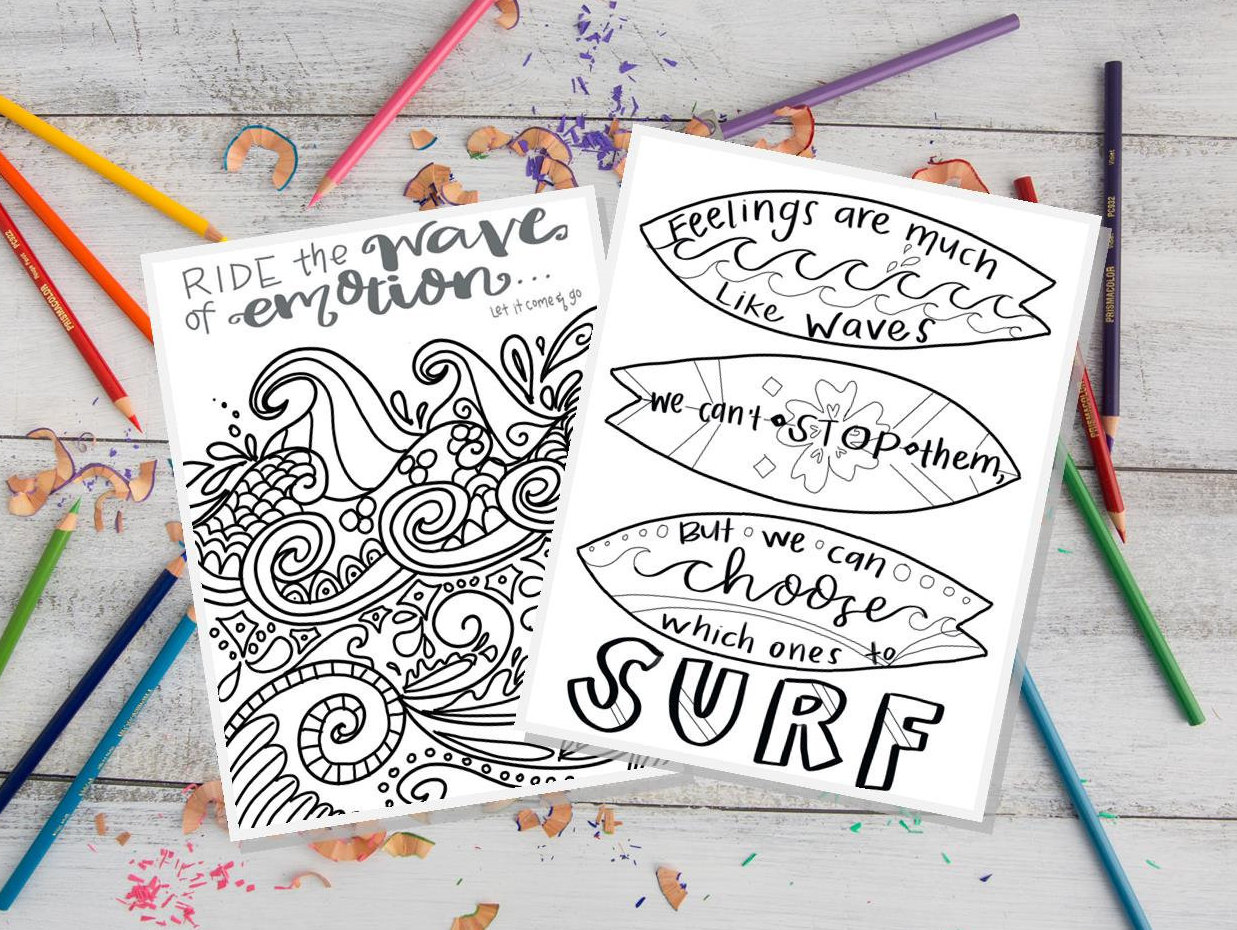 RIDE the wave
of emotion...
Let it come & go
Feelings are much
Like waves
we can't STOP them,
But we can
choose
which ones to
SURF
PRISMACOLOR
PC922
PRISMACOLOR
PC932
Violet
PRISMACOLOR